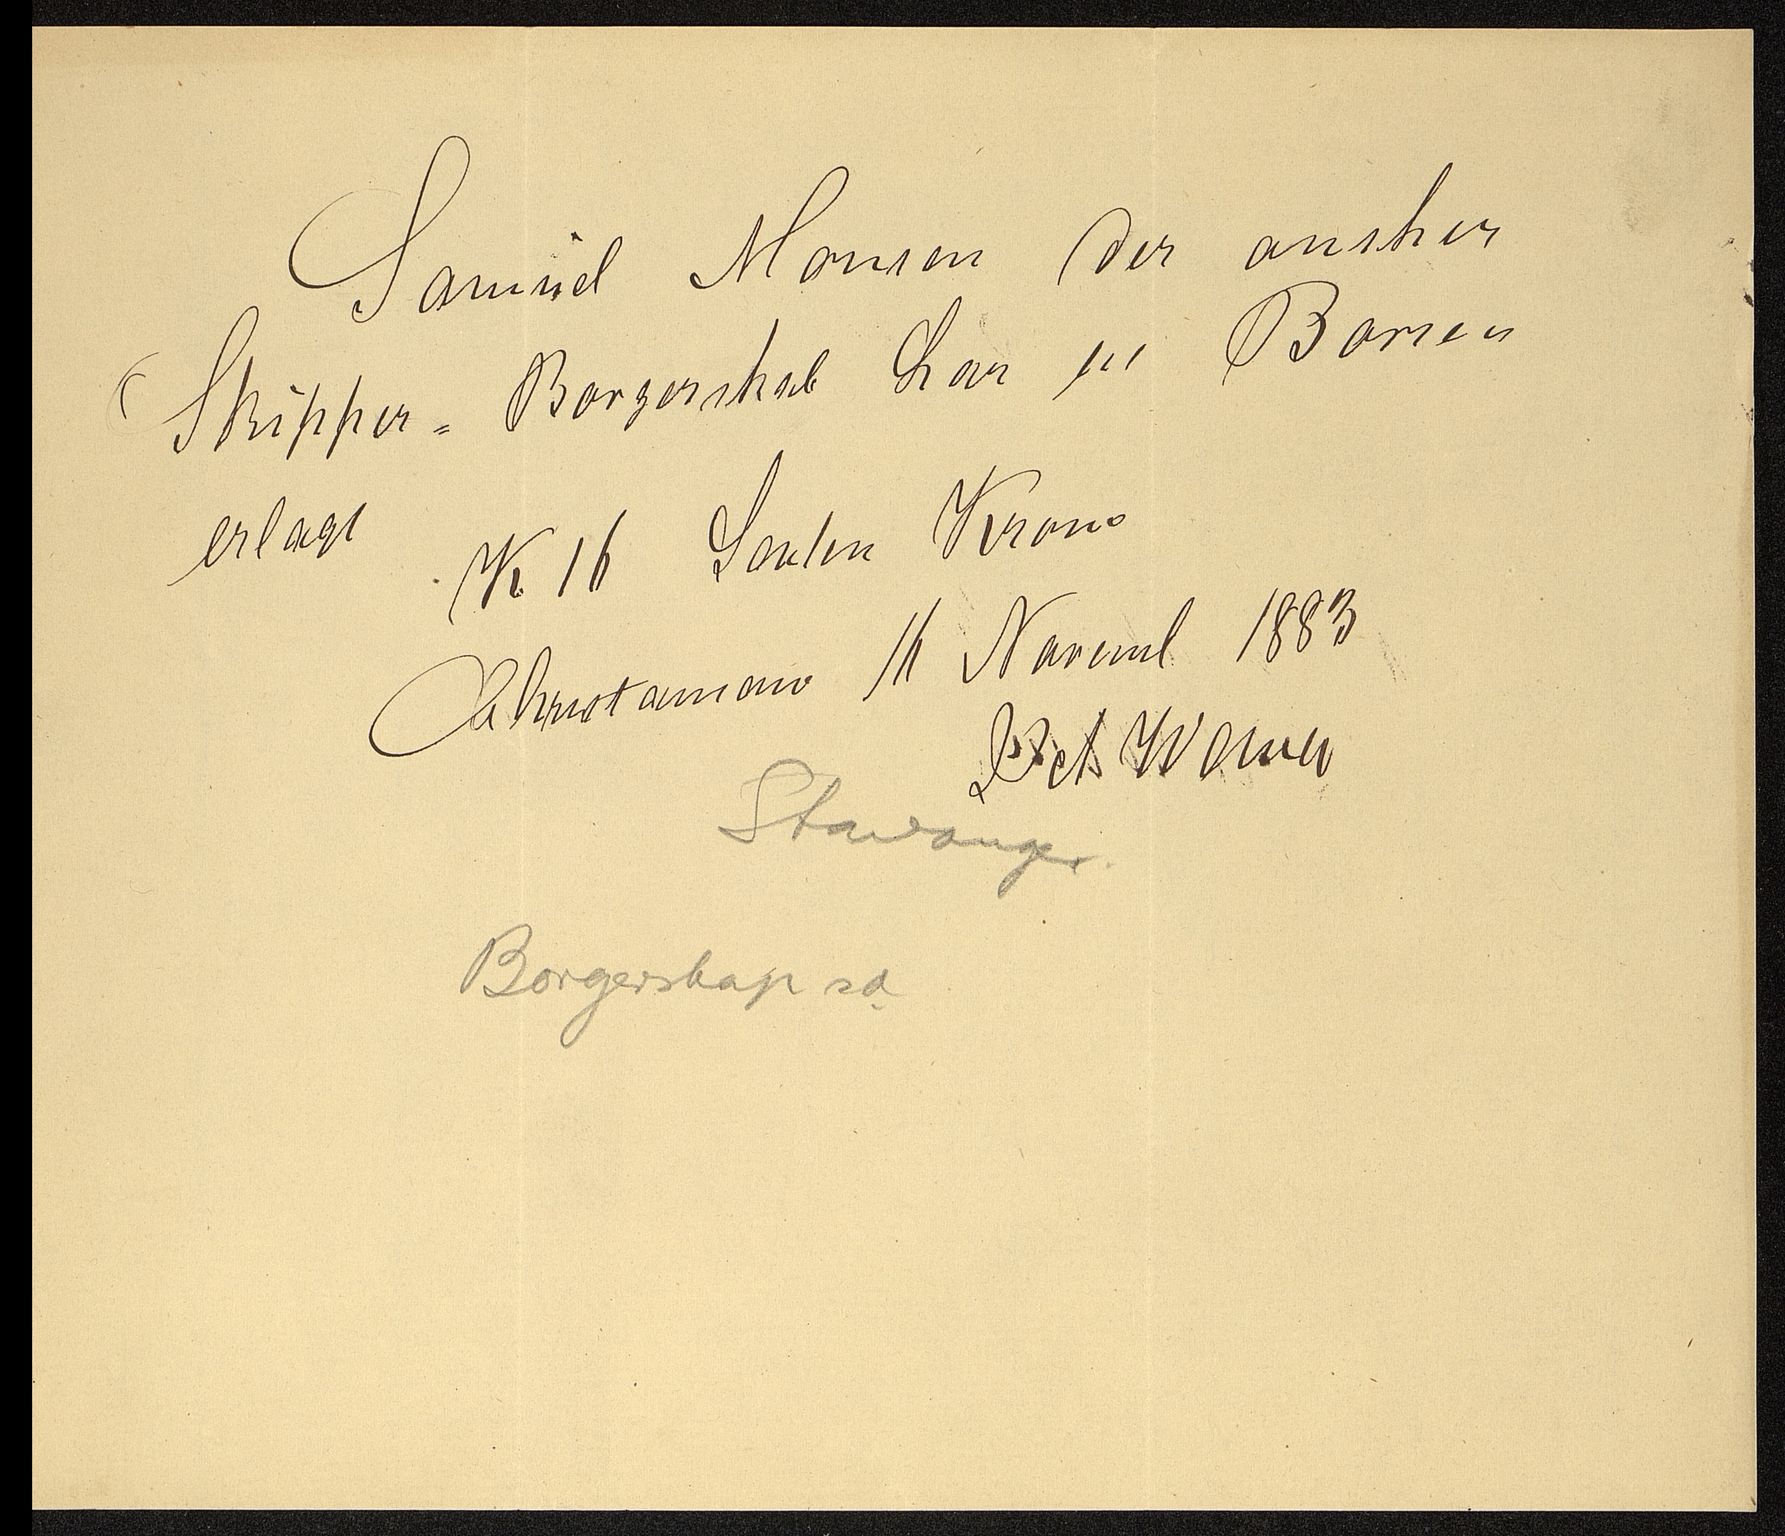 Samuel Monsen der ønsker
Skipper = Borgerskab har til Børsen
erlagt
K 16 Sexten Kroner
Christiania 16 Novembr 1883
Stavanger
Borgerskap sd.